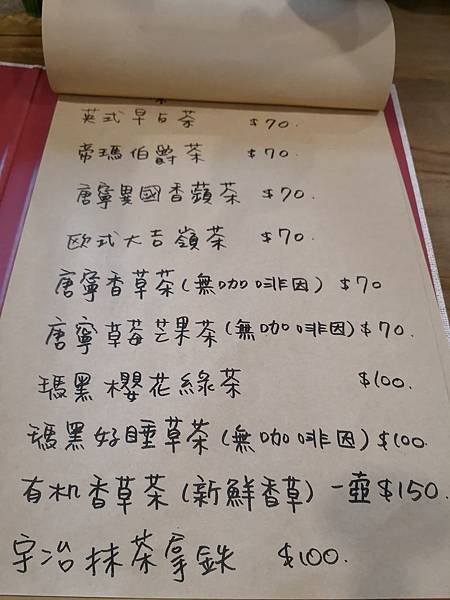 英式早点茶 $70.
帝瑪伯爵茶 $70.
唐寧異國香蘋茶 $70
欧式大吉嶺茶 $70.
唐寧香草茶(無咖啡因) $70
唐寧草莓芒果茶(無咖啡因)$70.
瑪黑櫻花綠茶 $100.
瑪黑好睡草茶(無咖啡因)$100.
有机香草茶(新鮮香草)一壺$150.
宇治抹茶拿鉄 $100.